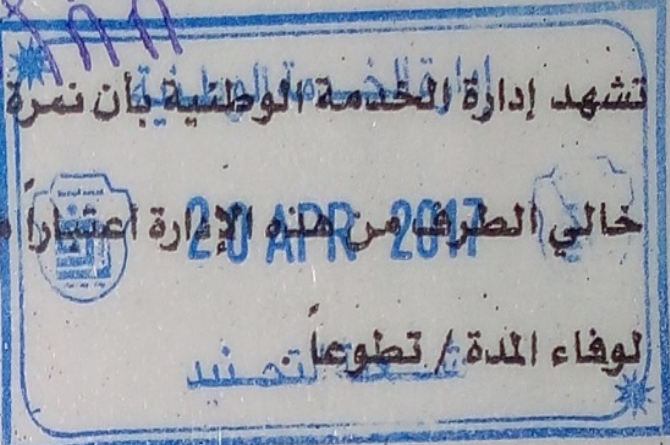 إدارة الخدمة الوطنية
تشهد إدارة الخدمة الوطنية بأن نمرة
خالي الطرف من هذه الإدارة اعتباراً
20 APR 2017
لوفاء المدة / تطوعاً .